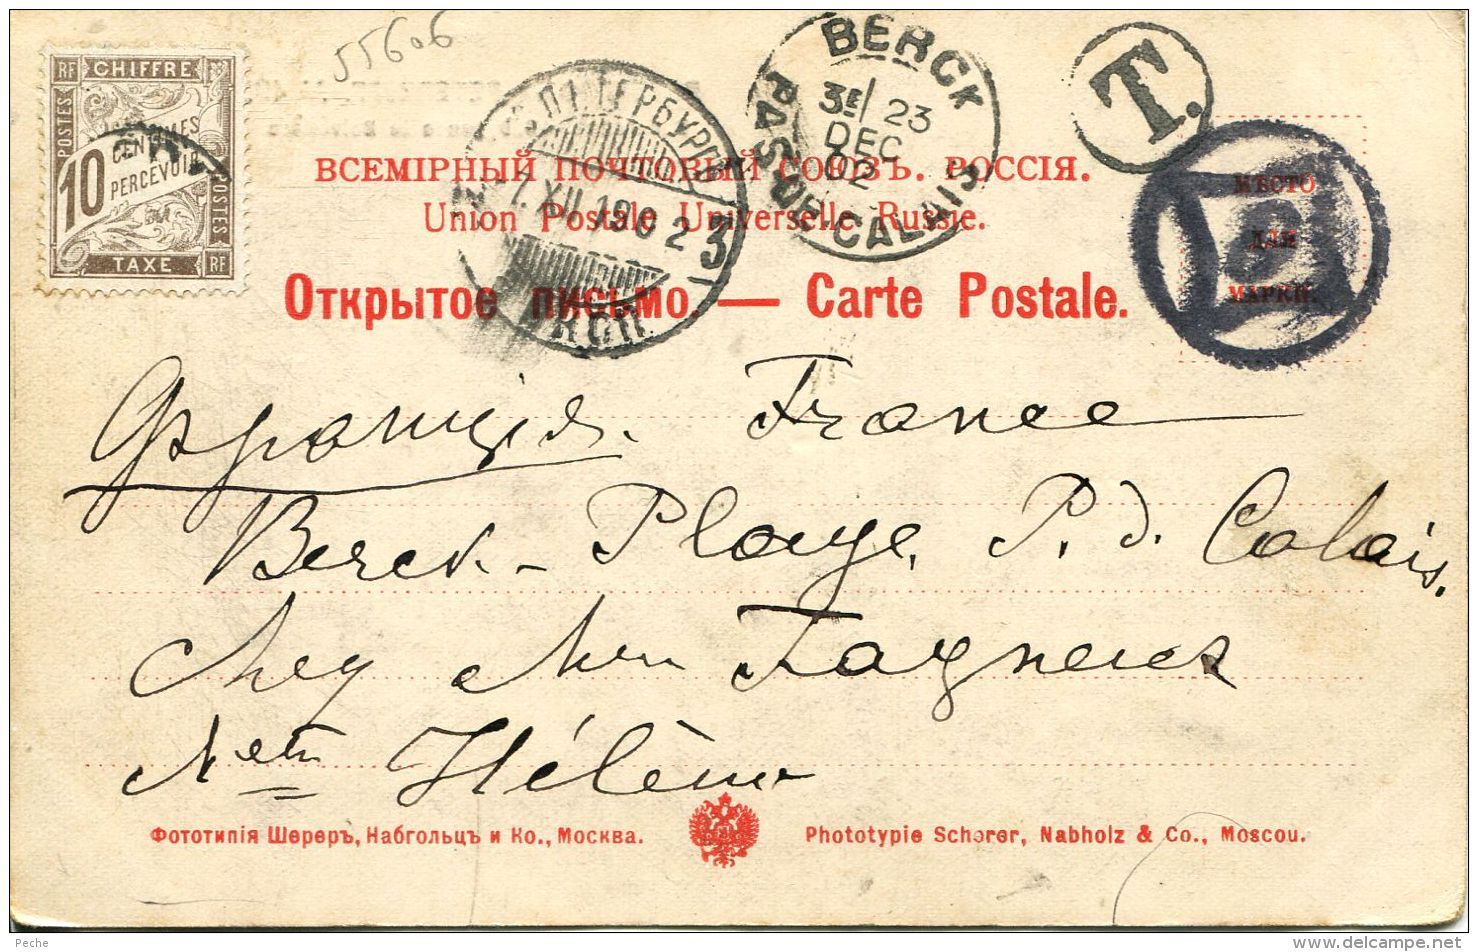 55606
RF CHIFFRE
POSTES
CENTIMES
10 PERCEVOIR
POSTES
TAXE RF
С.ПЕТЕРБУРГЪ
7.XII.1902
3
BERCK
3E/ 23
DEC
02
PAS-DE-CALAIS
T.
МѢСТО
ДЛЯ
МАРКИ.
ВСЕМІРНЫЙ ПОЧТОВЫЙ СОЮЗЪ. РОССІЯ.
Union Postale Universelle. Russie.
Открытое письмо. — Carte Postale.
Франція. France
Berck-Plage. P. d. Calais.
Chez Mme Fagneres
Hélène
Фототипія Шереръ, Набгольцъ и Ко., Москва.
Phototypie Scherer, Nabholz & Co., Moscou.
Peche
www.delcampe.net